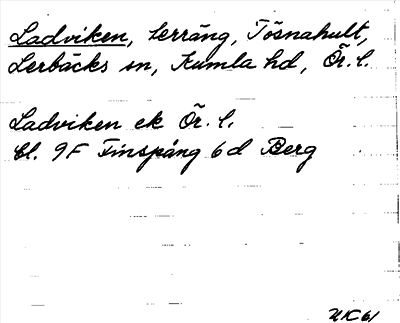 Ladviken, terräng, Tösnahult,
Lerbäcks sn, Kumla hd, Ör. l.
Ladviken ek Ör. l.
bl. 9F Finspång 6d Berg
NK 61